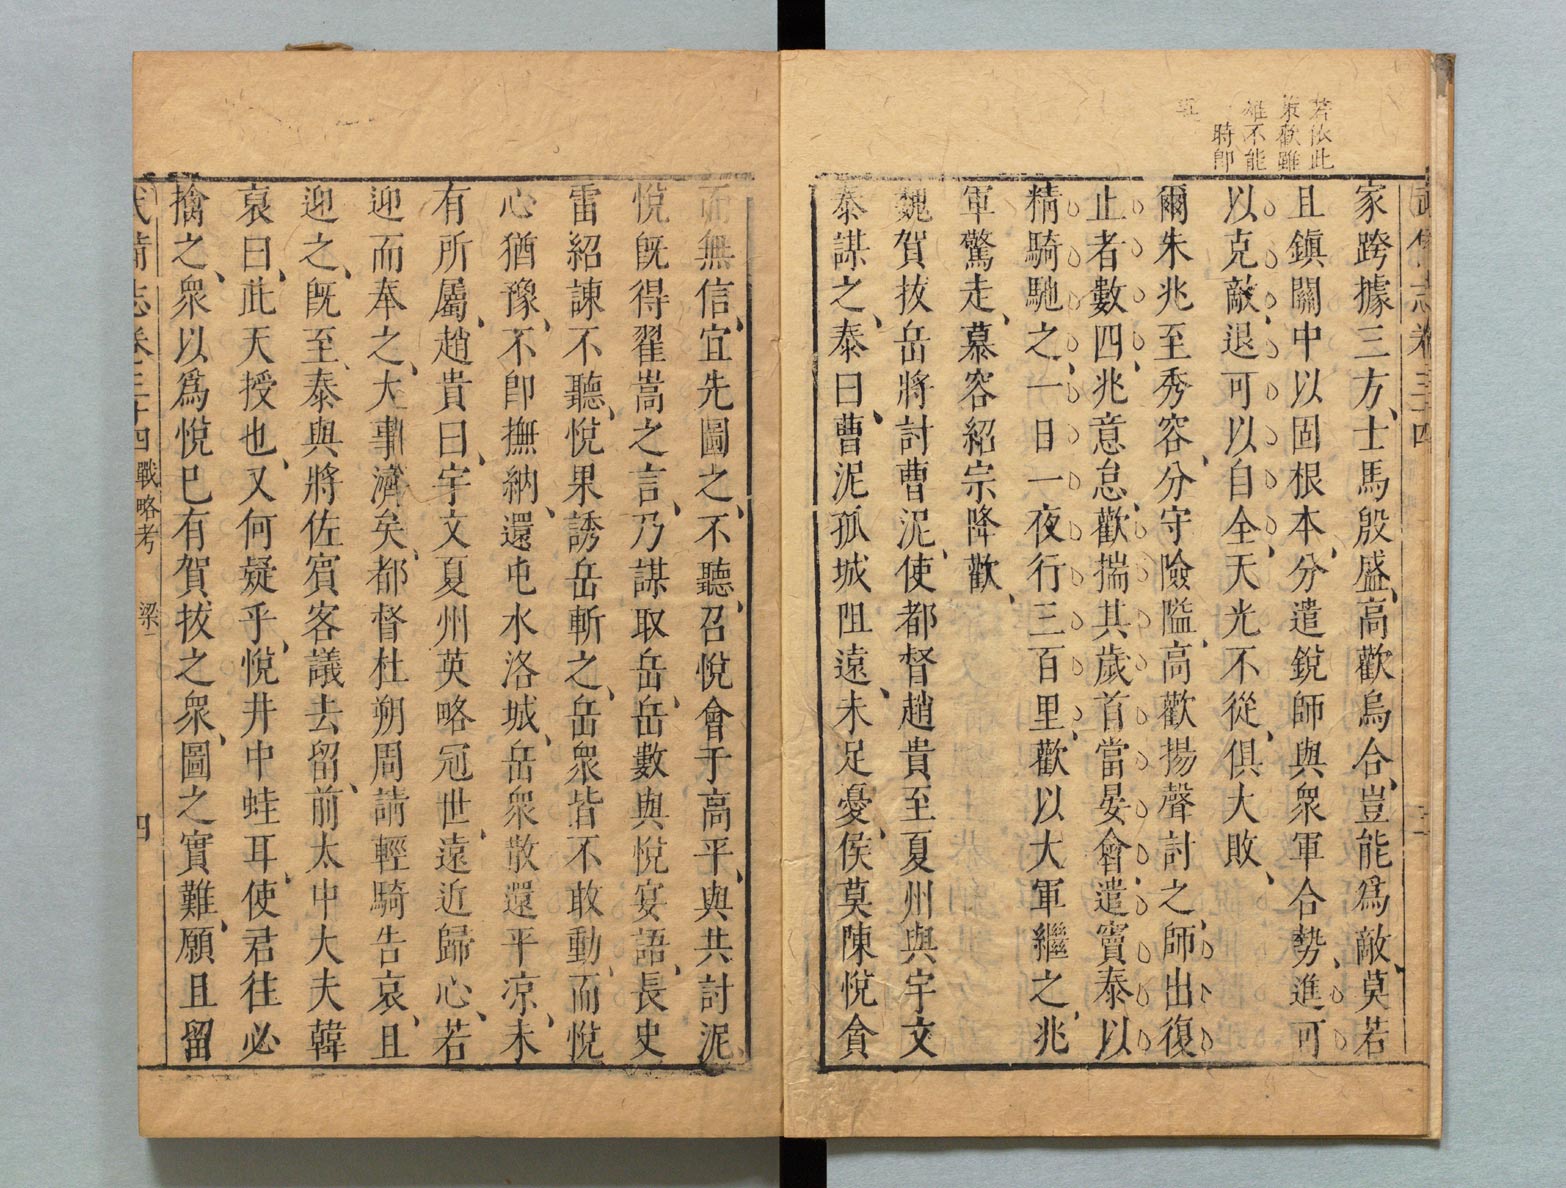 若依此
策歡雖
雄不能
時卽
家跨據三方、士馬殷盛、高歡烏合、豈能爲敵、莫若
且鎭關中以固根本、分遣銳師與衆軍合勢、進可
以克敵、退可以自全、天光不從、俱大敗、
爾朱兆至秀容、分守險隘、高歡揚聲討之、師出復
止者數四、兆意怠、歡揣其歲首當宴會、遣竇泰以
精騎馳之、一日一夜行三百里、歡以大軍繼之、兆
軍驚走、慕容紹宗降歡、
魏賀拔岳將討曹泥、使都督趙貴至夏州與宇文
泰謀之、泰曰、曹泥孤城阻遠、未足憂、侯莫陳悅貪
而無信、宜先圖之、不聽、召悅會于高平、與共討泥、
悅旣得翟嵩之言、乃謀取岳、岳數與悅宴語、長史
雷紹諫不聽、悅果誘岳斬之、岳衆皆不敢動、而悅
心猶豫、不卽撫納、還屯水洛城、岳衆散還平凉、未
有所屬、趙貴曰、宇文夏州英略冠世、遠近歸心、若
迎而奉之、大事濟矣、都督杜朔周請輕騎告哀、且
迎之、旣至、泰與將佐賓客議去留、前太中大夫韓
哀曰、此天授也、又何疑乎、悅井中蛙耳、使君往必
擒之、衆以爲悅已有賀拔之衆、圖之實難、願且留
武備志卷三十四 戰略考 梁一 四